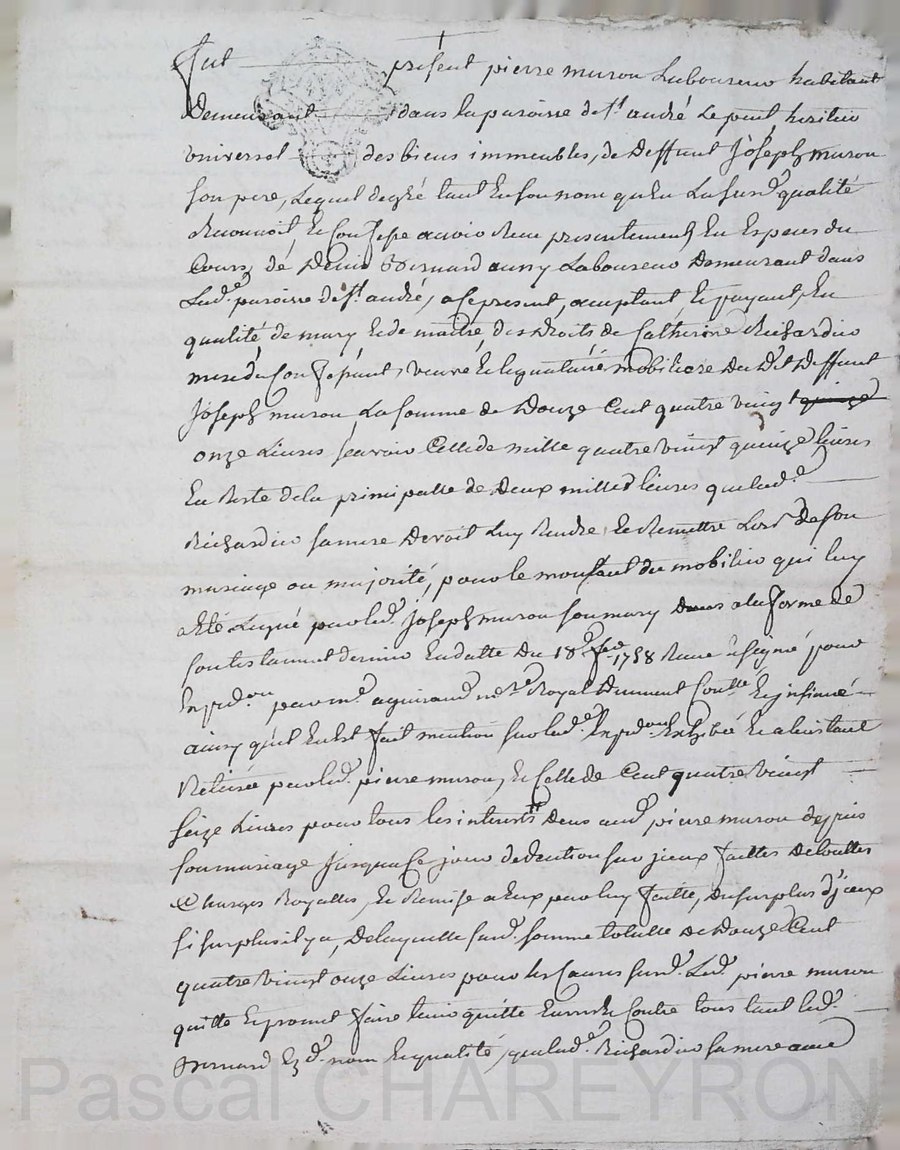 fut présent pierre murou Laboureur habitant
Demeurant dans la paroisse de St. andré Le puit, heritier
vniversel des biens immeubles, de Deffunt Joseph murou
son pere, Lequel de gré tant En son nom qu'En La susd. qualité
Reconnoit Et Confesse avoir Receu presentement En Especes du
Cours, de Denis Bernard auny Laboureur Demeurant dans
Lad. paroisse de St. andré, a Ce present, aceptant Et payant, En
qualité de mary Et de maitre, des Droits de Catherine Richardier
mere du Confessant, veuve Et legataire mobiliaire Du Dit Deffunt
Joseph murou La somme de Douze Cent quatre vingt
onze Livres scavoir Celle de mille quatre vingt quinze livres
En Reste de la principalle de Deux mille livres que lad.
Richardier sa mere Devoit Luy Rendre Et Remettre Lors de son
mariage ou majorité, pour le montant du mobilier qui luy
a Eté Legué par led. Joseph murou son mary a la forme de
son testament dernier En datte Du 18 1758 Receu signé pour
Expedon. par me. aguiraud nre. Royal Duement Contlle. Et insinué
ainsy qu'il En Est fait mention sur lad. Expedon. Exhibée Et a l'instant
Retirée par led. pierre murou, Et Celle de Cent quatre vingt
seize Livres pour tous les interests Deus aud. pierre murou depuis
son mariage Jusqu'a Ce jour deduction sur jceux faittes De touttes
Charges Royalles, Et Remise a Eux par luy faitte, du surplus d'jceux
si surplus il y a, De laquelle susd. somme totalle de Douze Cent
quatre vingt onze Livres pour les Causes susd. Led. pierre murou
quitte Et promet faire tenir quitte Envers Et Contre tous tant led.
Bernard Ezd. nom Et qualité, que lad. Richardier sa mere avec
Pascal CHAREYRON